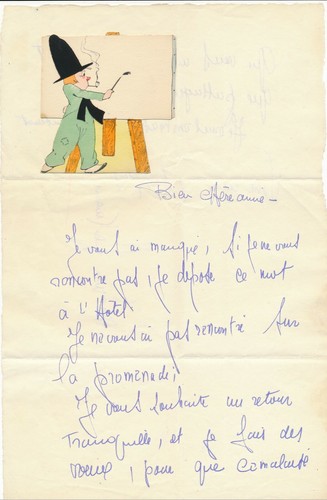 Bien chère amie –
Je vous ai manqué, si je ne vous
rencontre pas, je dépose ce mot
à l'Hotel
Je ne vous ai pas rencontré sur
la promenade;
Je vous souhaite un retour
tranquille, et je fais des
voeux, pour que